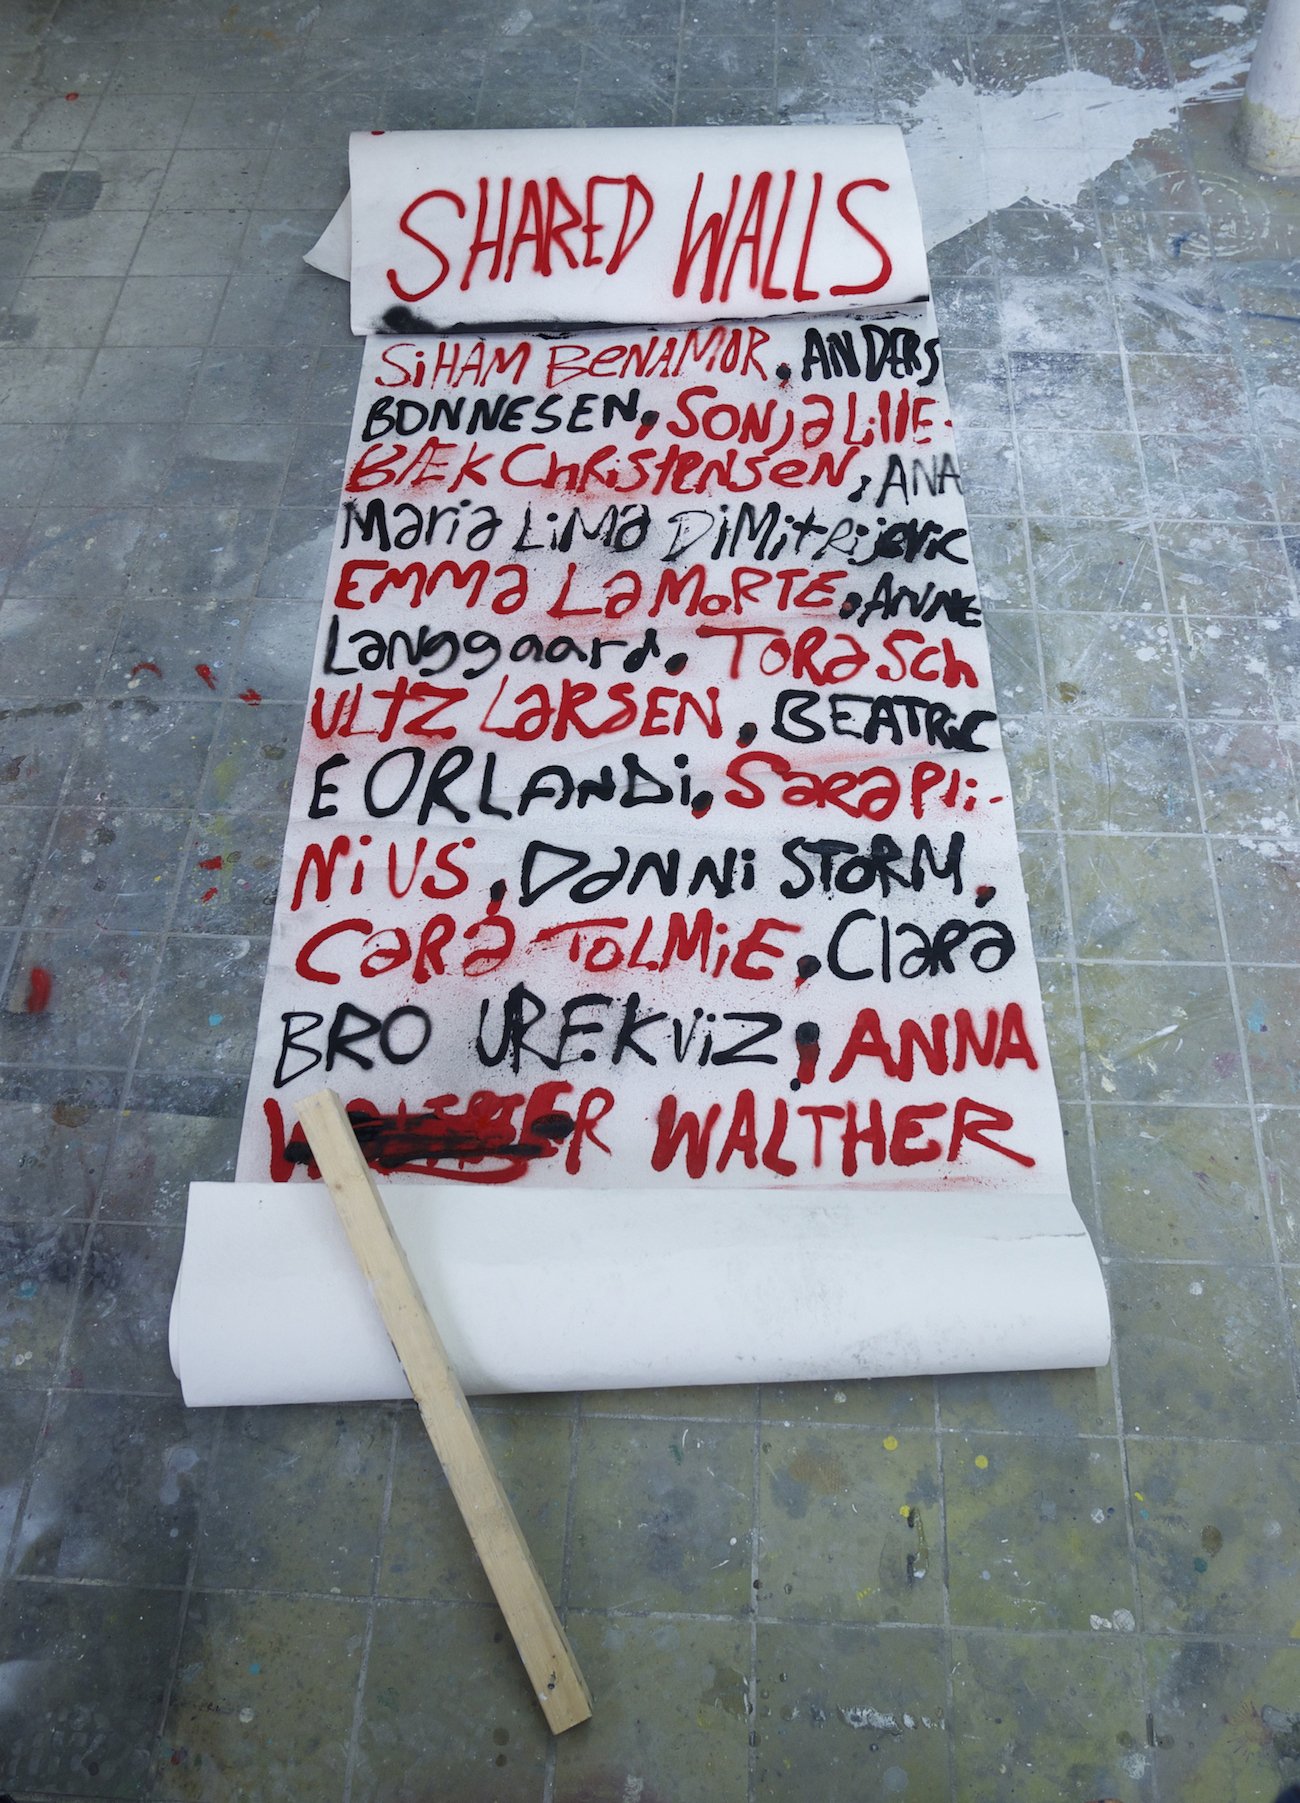 SHARED WALLS
SiHAM BeNAMOR, ANDERS
BONNESEN, SONja Lille-
BÆK ChRiSTENSeN, ANA
Maria LiMa DiMitRijevic
EMMa LaMoRTE, ANNE
Langgaard, TORa Sch
ULTZ LaRSEN, BEATRIC
E ORLANDi, Sara Pli-
NiUS, DaNNi SToRM,
CaRa ToLMiE, Clara
BRO UREKViZ, ANNA
WALTHER